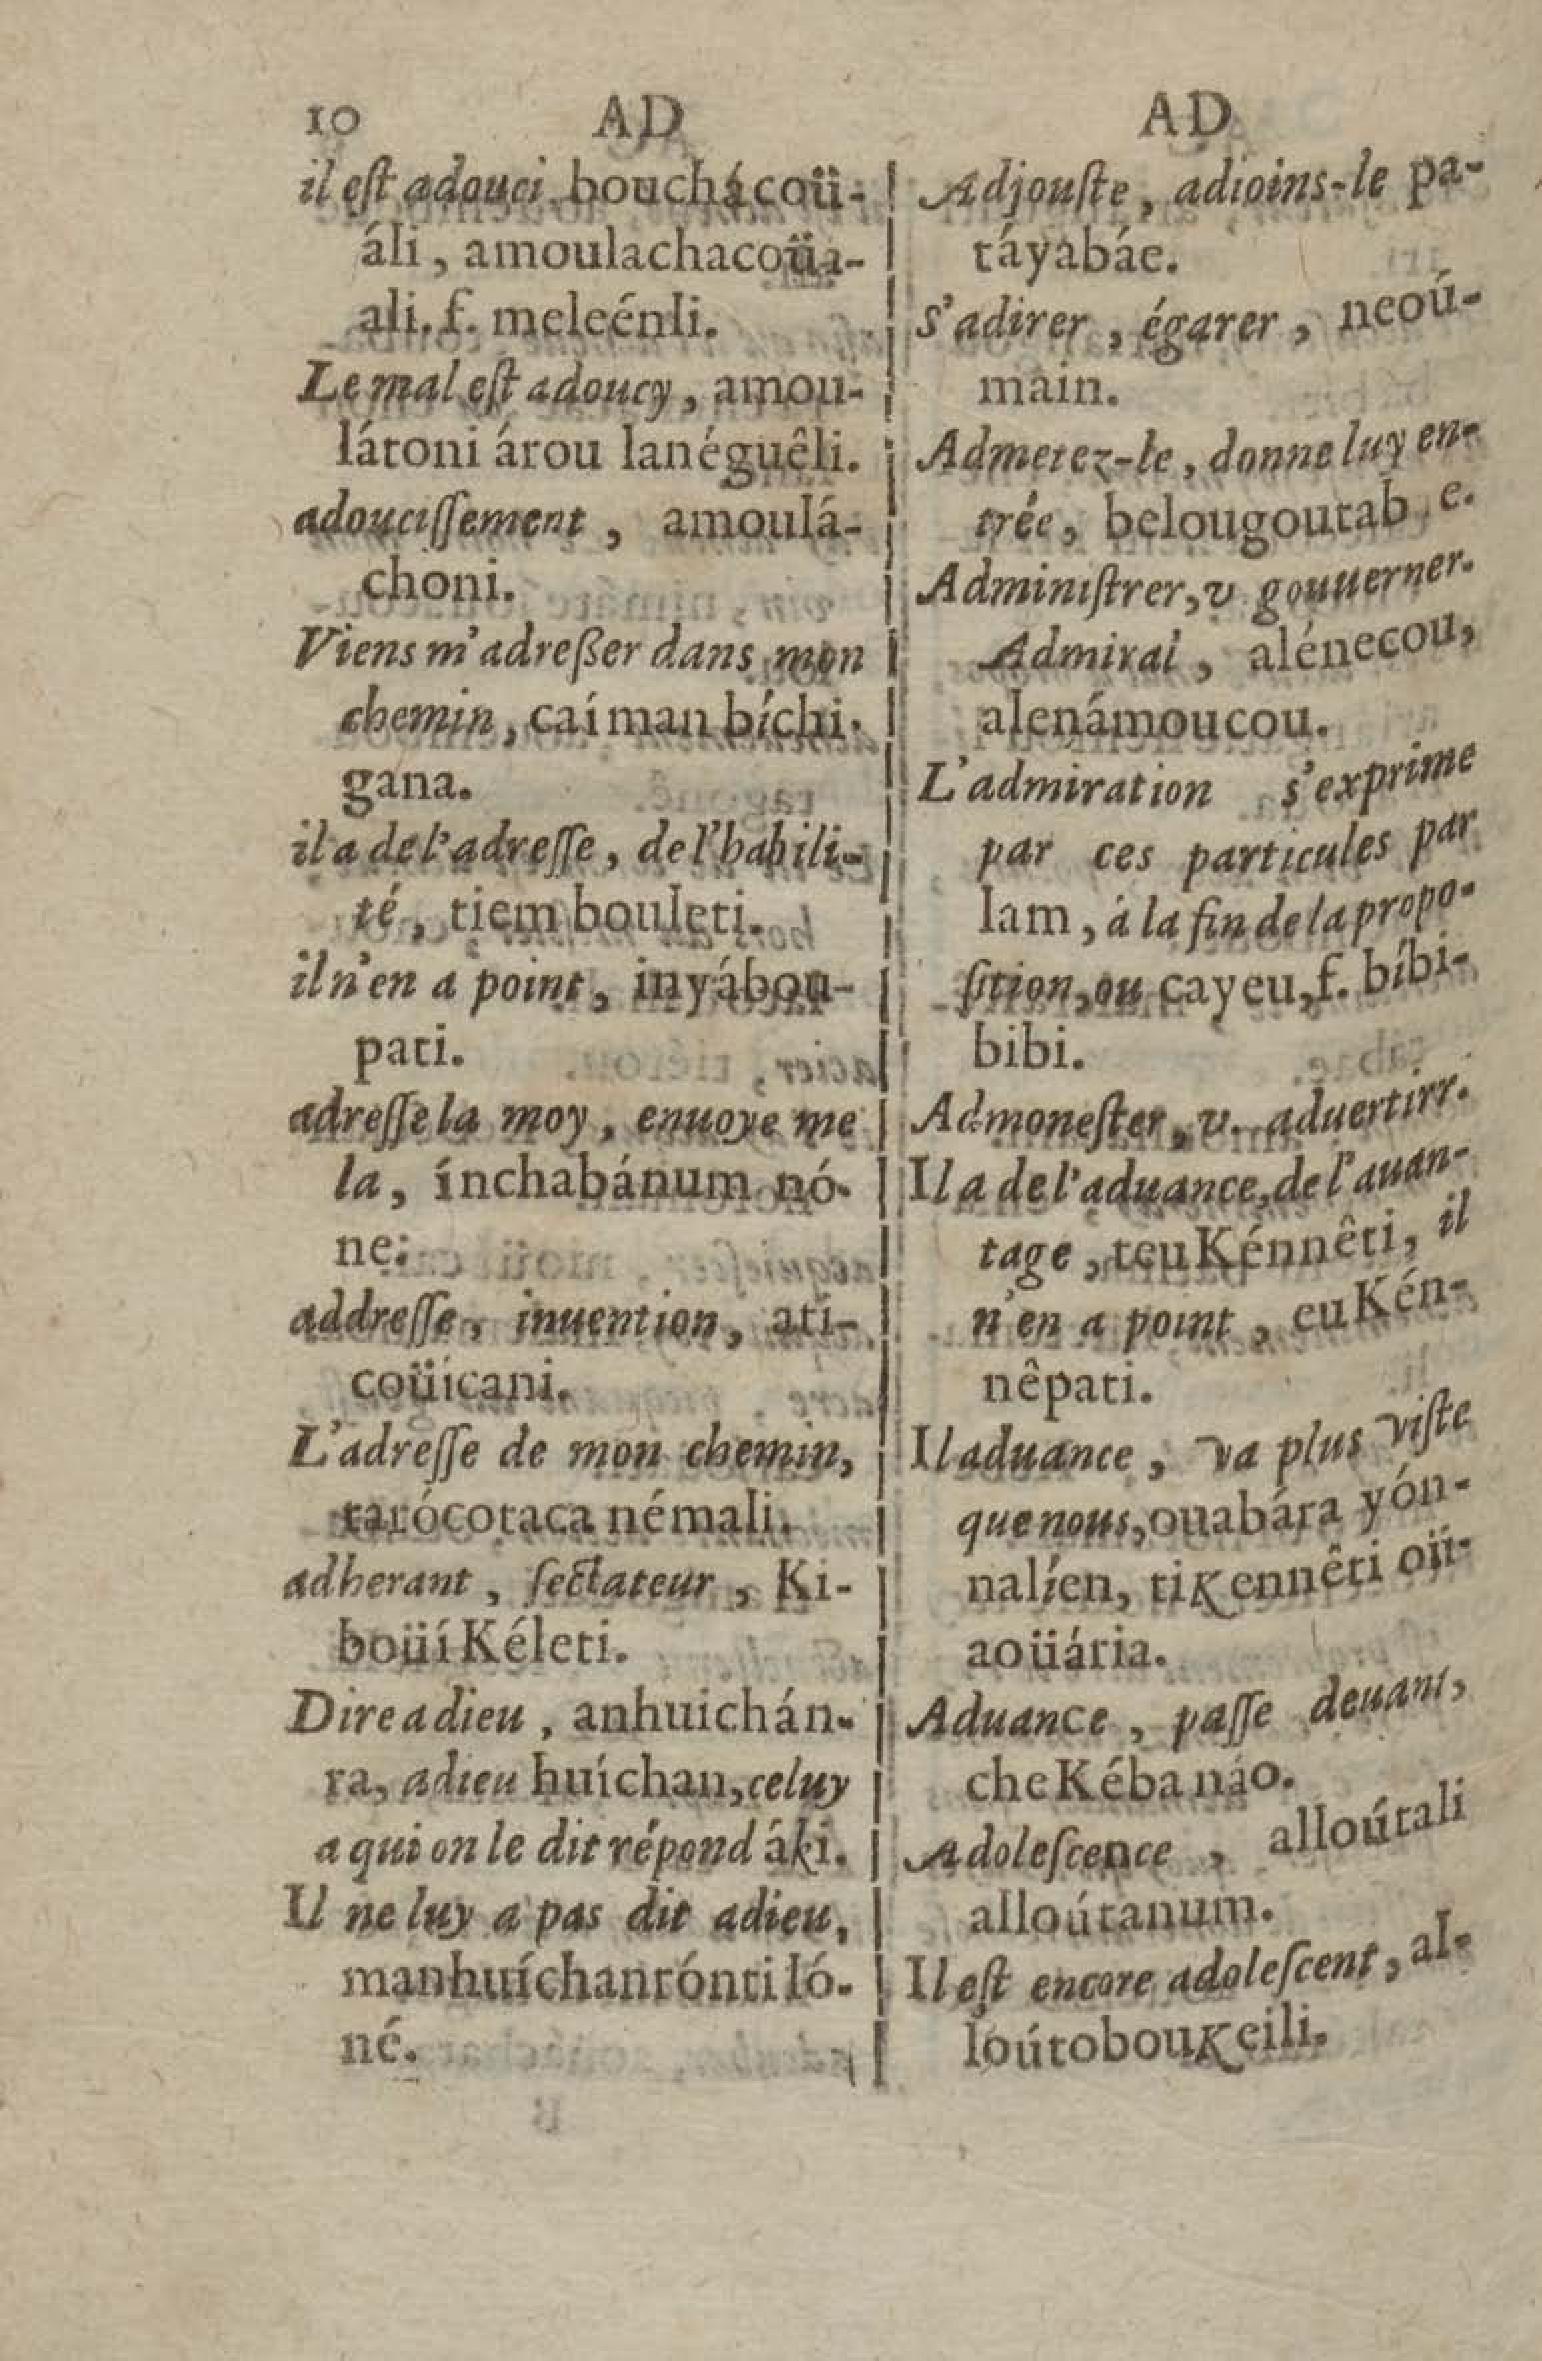 10 AD AD
il est adouci bouchácoü-
áli, amoulachacoüa-
ali. f. meleénli.
Le mal est adoucy, amou-
látoni árou lanéguêli.
adoucissement, amoulá-
choni.
Viens m'adreßer dans mon
chemin, caíman bíchi-
gana.
il a de l'adresse, de l'habili-
té, tiem bouleti.
il n'en a point, inyábou-
pati.
adresse la moy, enuoye me
la, ínchabánum nó-
ne:
addresse, inuention, ati-
coüícani.
L'adresse de mon chemin,
tarócotaca némali.
adherant, sectateur, Ki-
boüí Kéleti.
Dire adieu, anhuichán-
ra, adieu huíchan, celuy
a qui on le dit répond áki.
Il ne luy a pas dit adieu,
manhuíchanrónti ló-
né.
Adjouste, adioins-le pa-
táyabáe.
s'adirer, égarer, neoú-
main.
Admetez-le, donne luy en-
trée, belougoutab e.
Administrer, v gouuerner.
Admiral, alénecou,
alenámoucou.
L'admiration s'exprime
par ces particules par
lam, á la fin de la propo-
sition, ou cayeu, f. bíbi-
bibi.
Admonester, v. aduertirr.
Il a de l'aduance, de l'auan-
tage, teuKénnêti, il
n'en a point, euKén-
nêpati.
Il aduance, va plus viste
que nous, ouabára yón-
nalíen, tiKennêti oü-
aoüária.
Aduance, passe deuant,
cheKéba náo.
Adolescence, alloútali
alloútanum.
Il est encore adolescent, al-
loútobouKeili.